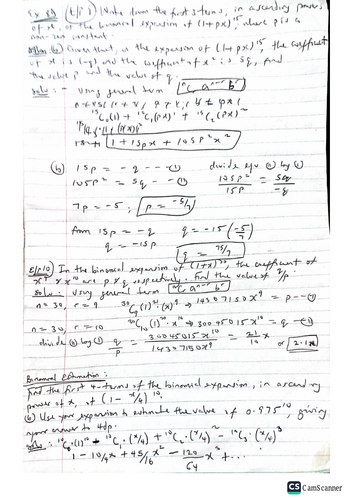 (i) Write down the first 3 terms, in ascending powers
of x, of the binomial expansion of (1+px)^15, where p is a
non-zero constant.
Given that, in the expansion of (1+px)^15, the coefficient
of x is (-q) and the coefficient of x² is 5q, find
the value p and the value of q.
soln: - Using general term ⁿC aⁿ⁻ʳ bʳ
¹⁵C₀(1) + ¹⁵C₁(px)¹ + ¹⁵C₂(px)²
1 + 15px + 105p²x²
(b) 15p = -q --- (1) divide eqn (2) by (1)
105p² = 5q -- (2) 105p²/15p = 5q/-q
7p = -5; p = -5/7
from 15p = -q q = -15(-5/7)
q = -15p q = 75/7
In the binomial expansion of (1+x)^30, the coefficient of
x⁹ & x^10 are p & q respectively. Find the value of q/p.
Soln: Using general term ⁿC aⁿ⁻ʳ bʳ
n=30, r=9 ³⁰C₉(1)²¹(x)⁹ → 14307150x⁹ = p --(1)
n=30, r=10 ³⁰C₁₀(1)²⁰ x^10 → 30045015x^10 = q --(2)
divide (2) by (1) q/p = 30045015x^10/14307150x⁹ = 21/10 x or 2.1x
Binomial Estimation:
Find the first 4-terms of the binomial expansion, in ascending
power of x, of (1 - x/4)^10.
(b) Use your expansion to estimate the value of 0.975^10, giving
your answer to 4dp.
soln: ¹⁰C₀(1)^10 - ¹⁰C₁(x/4) + ¹⁰C₂(x/4)² - ¹⁰C₃(x/4)³
1 - 10/4x + 45/16x² - 120/64 x³ + ...
CS CamScanner